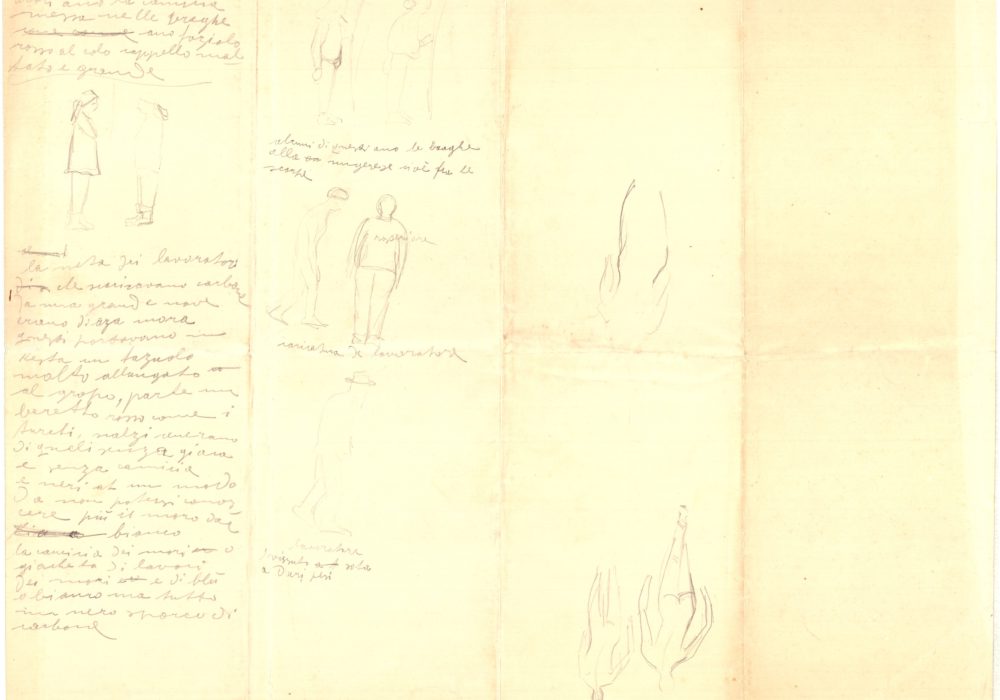 messa nelle braghe
ano faziolo
rosso al colo cappello mal
tato e grande
alcuni di questi ano le braghe
alla ungerese cioè fra le
scarpe
la metà dei lavoratori
che scaricavano carbone
da una grande nave
erano di aza mora
questi portavano in
testa un faziolo
molto allungato
al gropo, parte un
beretto rosso come i
turchi, scalzi
di queli senza giaca
e senza camicia
e neri at un modo
da non potersi conos
cere più il moro dal
bianco
la camicia dei mori o
giacheta di lavori
dei mori e di blù
o bianco ma tutto
un nero sporco di
carbone
caricatura de lavoratore
lavoratore
a Duri pesi